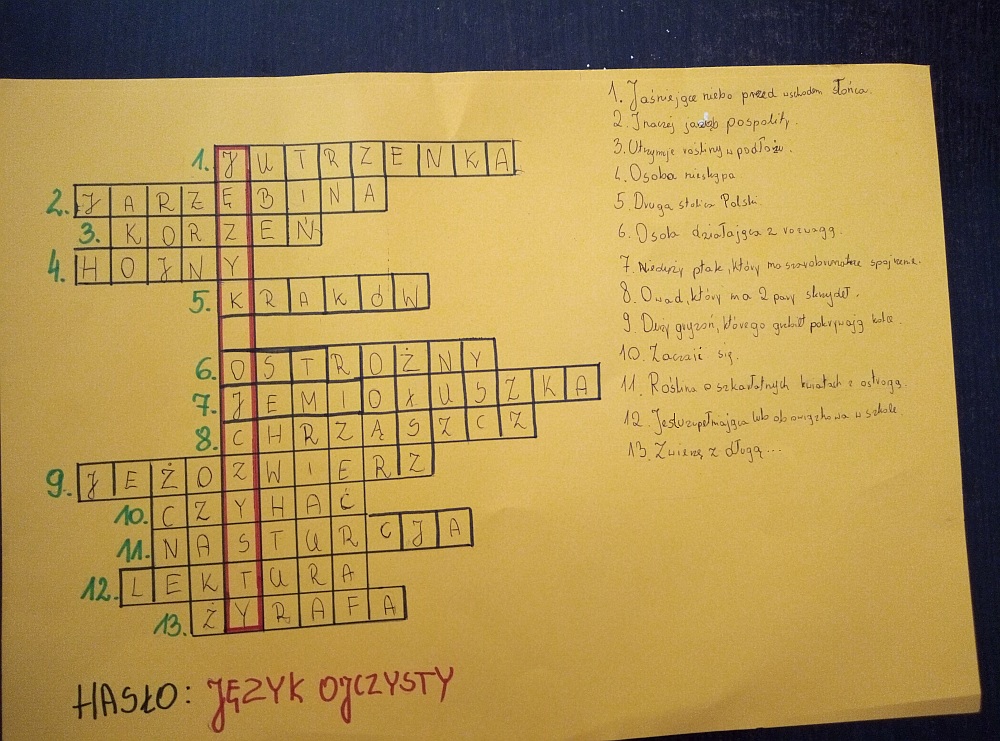 1. JUTRZENKA
2. JARZĘBINA
3. KORZEŃ
4. HOJNY
5. KRAKÓW
6. OSTROŻNY
7. JEMIOŁUSZKA
8. CHRZĄSZCZ
9. JEŻOZWIERZ
10. CZYHAĆ
11. NASTURCJA
12. LEKTURA
13. ŻYRAFA
HASŁO: JĘZYK OJCZYSTY
1. Jaśniejące niebo przed wschodem słońca.
2. Inaczej jarząb pospolity.
3. Utrzymuje rośliny w podłożu.
4. Osoba nieskąpa
5. Druga stolica Polski.
6. Osoba działająca z rozwagą.
7. Nieduży ptak, który ma szarobrunatne
8. Owad, który ma 2 pary skrzydeł.
9. Duży gryzoń, którego grzbiet pokrywają kolce.
10. Zaczaić się.
11. Roślina o szkarłatnych kwiatach z ostrogą.
12. Jest uzupełniająca lub obowiązkowa w szkole.
13. Zwierzę z długą...